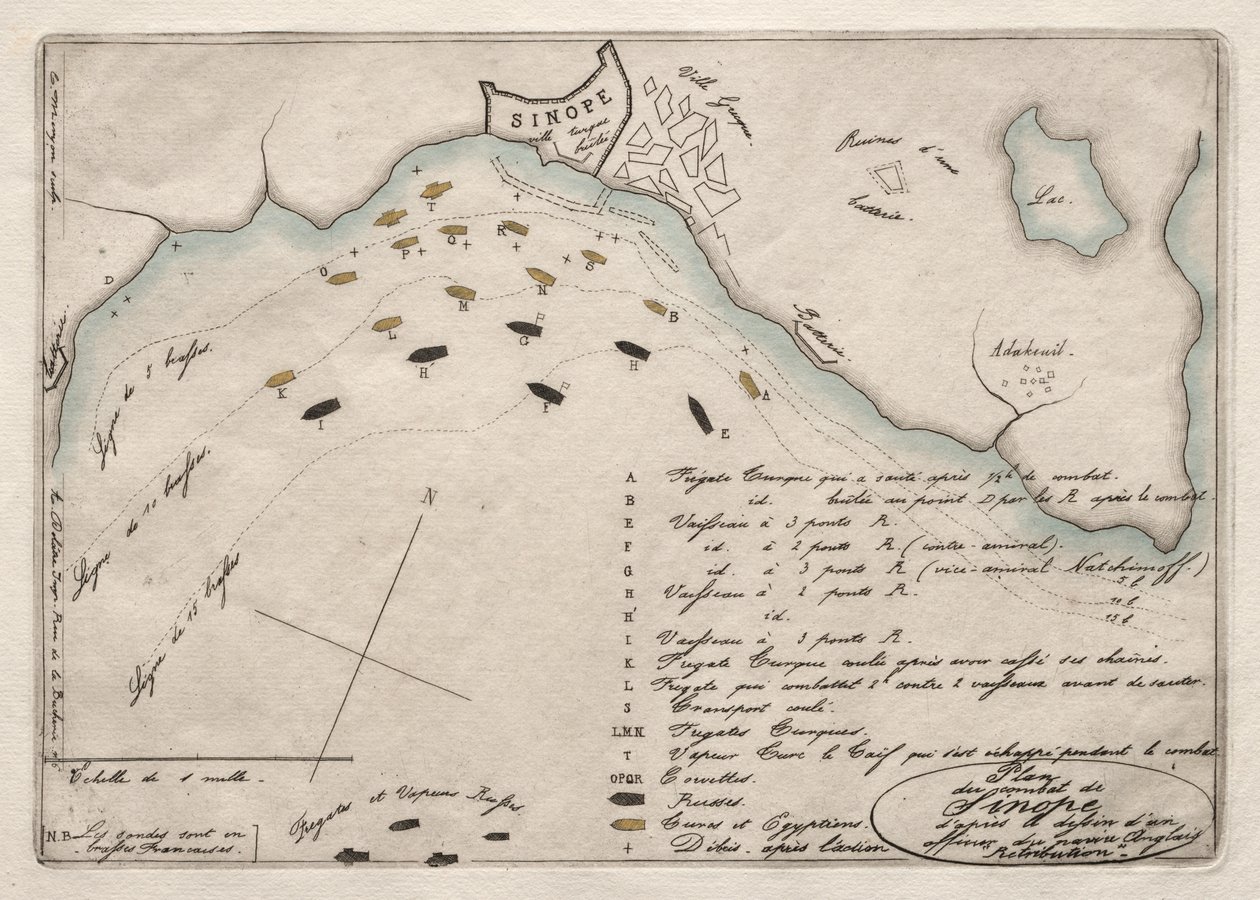 C. Meryon sculp.
SINOPE
ville turque
brûlée
Ville Grecque.
Ruines d'une
batterie.
Lac.
T
Q
R
P
O
S
N
M
B
D
L
G
H'
H
K
F
A
I
E
Batterie
Batterie
Adakeuil.
Ligne de 5 brasses.
Ligne de 10 brasses.
Ligne de 15 brasses
N
A Frégate Turque qui a sauté après 1/2 h de combat.
B id. brûlée au point D par les R après le combat.
E Vaisseau à 3 ponts R.
F id. à 2 ponts R. (contre-amiral).
G id. à 3 ponts R (vice-amiral Natchimoff.)
H Vaisseau à 2 ponts R.
H' id.
I Vaisseau à 3 ponts R.
K Fregate Turque coulée après avoir cassé ses chaînes.
L Fregate qui combattit 2h contre 2 vaisseaux avant de sauter.
S Transport coulé.
LMN Fregates Turques.
T Vapeur Turc le Taïf qui s'est échappé pendant le combat
OPQR Corvettes.
Russes.
Turcs et Egyptiens.
+ Débris après l'action
5 b
10 b
15 b
Echelle de 1 mille.
Fregates et Vapeurs Russes
N.B. Les sondes sont en
brasses Francaises.
Plan
du combat de
Sinope
d'après le dessin d'un
officier du navire Anglais
"Retribution"
Imp. Rue de la Bucherie, N° 6